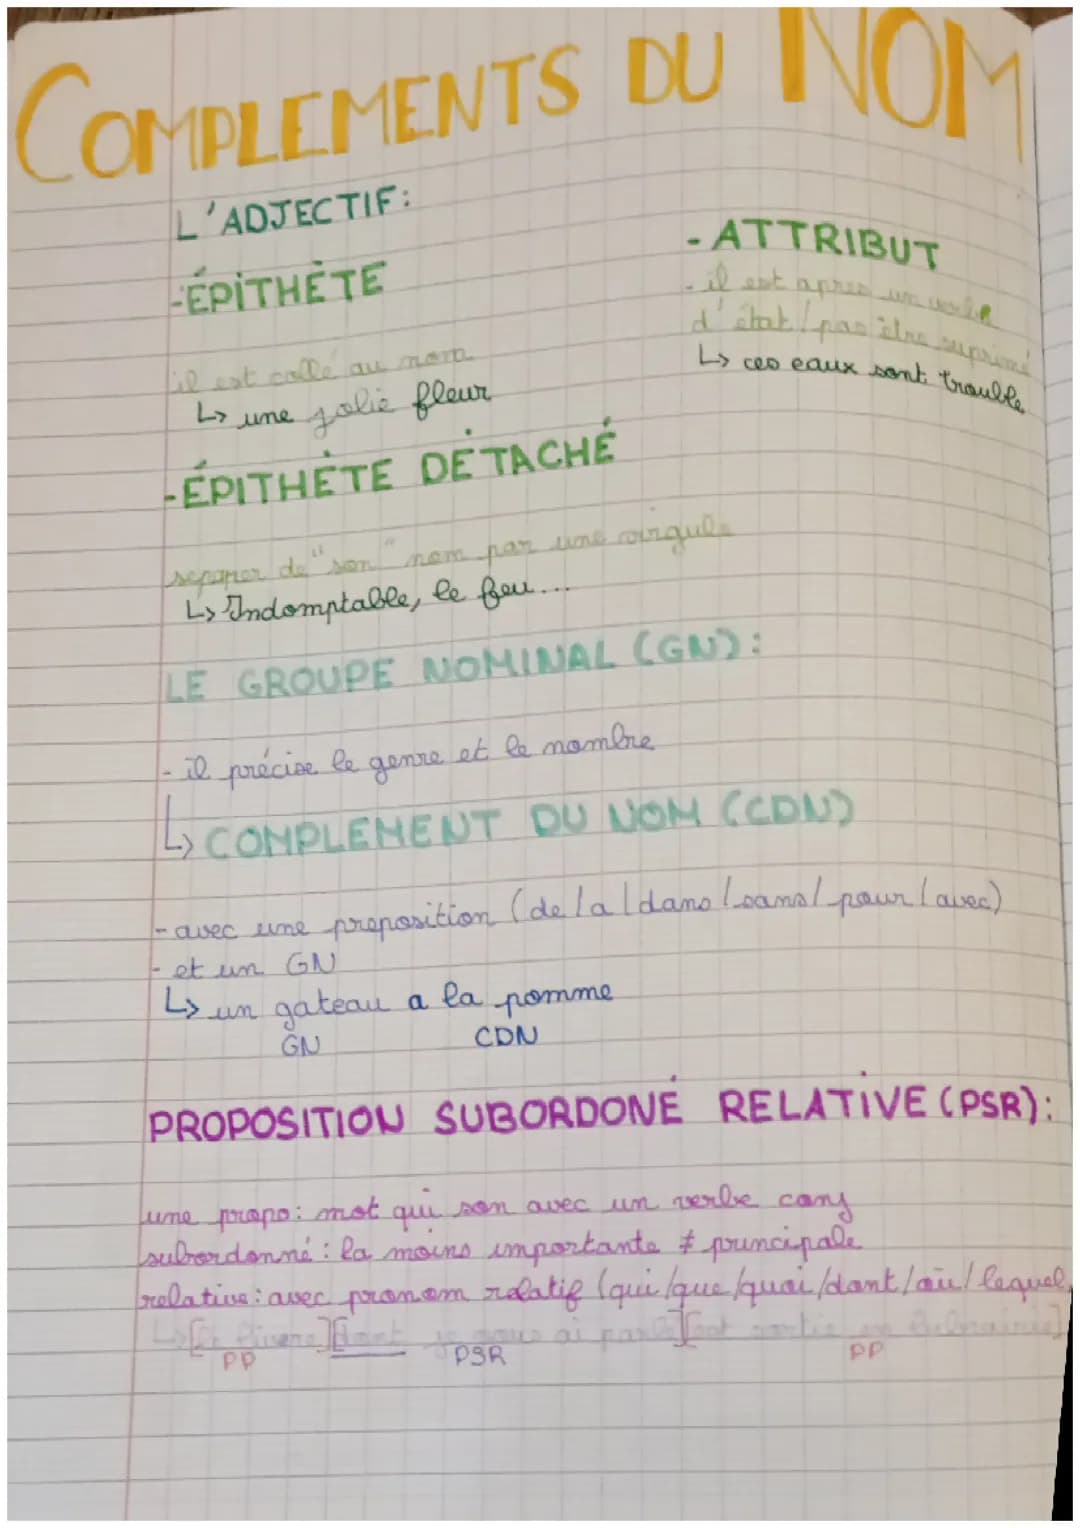 COMPLEMENTS DU NOM
L'ADJECTIF:
-ÉPITHÈTE
il est collé au nom
↳ une jolie fleur
- ATTRIBUT
- il est apres un verbe
d'état / pas être suprimé
↳ ces eaux sont trouble
-ÉPITHÈTE DÉTACHÉ
separer de "son" nom par une virgule
↳ Indomptable, le feu...
LE GROUPE NOMINAL (GN):
- il précise le genre et le nombre
↳ COMPLEMENT DU NOM (CDN)
- avec une preposition (de/a/dans/sans/pour/avec)
- et un GN
↳ un gateau a la pomme
GN CDN
PROPOSITION SUBORDONÉ RELATIVE (PSR):
une propo: mot qui son avec un verbe conj
subordonné: la moins importante ≠ principale
relative: avec pronom relatif (qui/que/quoi/dont/où/lequel
↳[le livre][dont je vous ai parlé][est sortie en]
PP PSR PP